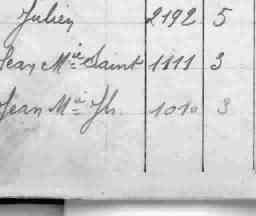 Julien 2192 5
Jean Mie Saint 1111 3
Jean Mie Jh. 1010 3